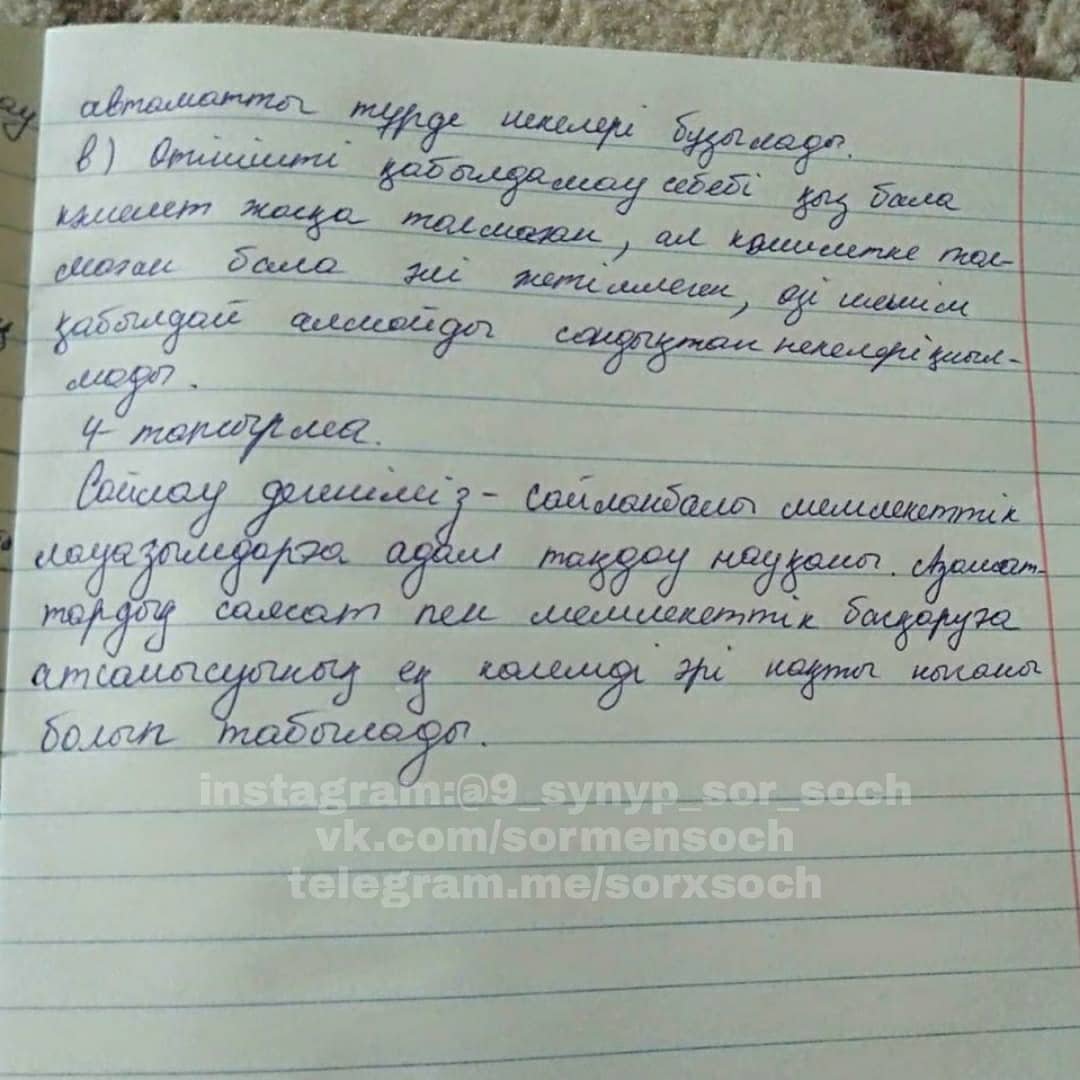 автоматты түрде некелері бұзылады.
в) Өтінішті қабылдамау себебі қыз бала
кәмелет жасқа толмаған, ал кәмилетке тол-
маған бала әлі жетілмеген, өзі шешім
қабылдай алмайды сондықтан некелері қиыл-
мады.
4-тапсырма.
Сайлау дегеніміз - сайланбалы мемлекеттік
лауазымдарға адам таңдау науқаны. Азамат-
тардың саясат пен мемлекеттік басқаруға
атсалысуының ең көлемді әрі нақты нысаны
болып табылады.
instagram:@9_synyp_sor_soch
vk.com/sormensoch
telegram.me/sorxsoch